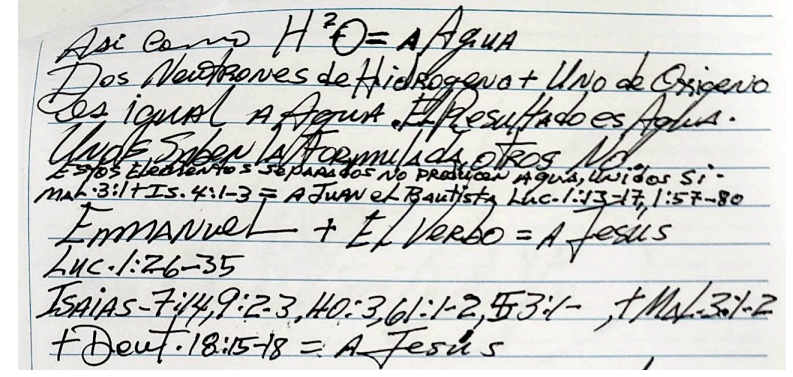 Asi como H²O = A Agua
Dos Neutrones de Hidrogeno + Uno de Oxigeno
es igual A Agua. El Resultado es Agua.
Unos Saben la Formulada, otros No.
Estos Elementos Separados no Producen Agua, Unidos Si-
MAL.3:1 + IS. 4:1-3 = A JUAN el Bautista Luc.1:13-17, 1:57-80
Emmanuel + El Verbo = A Jesus
Luc.1:26-35
ISAIAS-7:14, 9:2-3, 40:3, 61:1-2, 53:1- , + Mal-3:1-2
+ Deut.18:15-18 = A Jesús